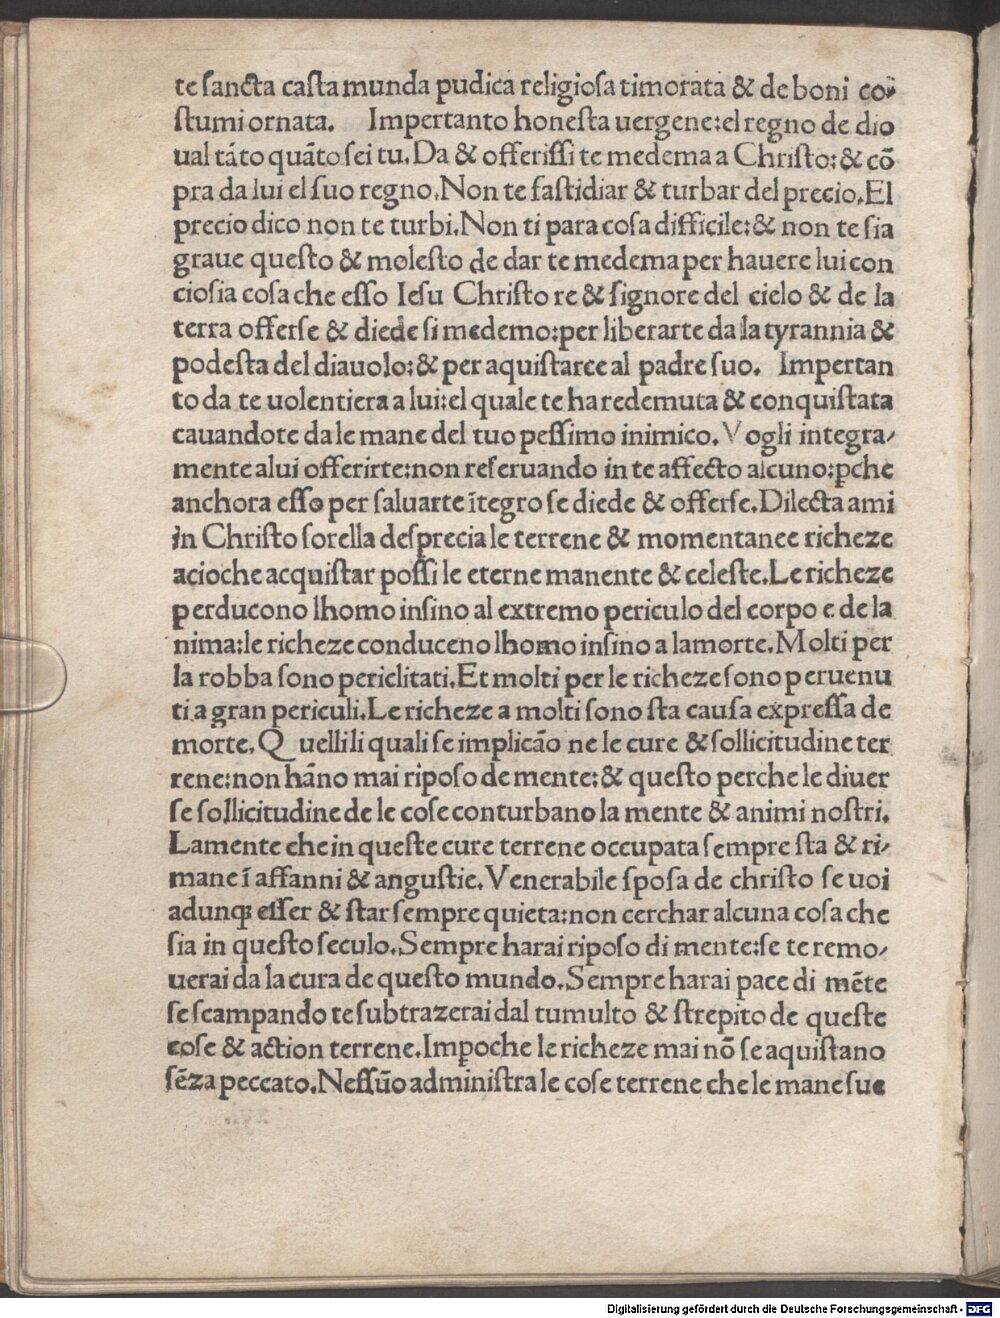 te ſancta caſta munda pudica religioſa timorata & de boni co⸗
ſtumi ornata. Impertanto honeſta uergene:el regno de dio
ual tãto quãto ſei tu.Da & offeriſſi te medema a Chriſto:& cõ
pra da lui el ſuo regno.Non te faſtidiar & turbar del precio.El
precio dico non te turbi.Non ti para coſa difficile:& non te ſia
graue queſto & moleſto de dar te medema per hauere lui con
cioſia coſa che eſſo Ieſu Chriſto re & ſignore del cielo & de la
terra offerſe & diede ſi medemo:per liberarte da la tyrannia &
podeſta del diauolo:& per aquiſtarce al padre ſuo. Impertan
to da te uolentiera a lui:el quale te ha redemuta & conquiſtata
cauandote da le mane del tuo peſſimo inimico.Vogli integra⸗
mente alui offerirte:non reſeruando in te affecto alcuno:ꝑche
anchora eſſo per ſaluarte ĩtegro ſe diede & offerſe.Dilecta ami
in Chriſto ſorella deſprecia le terrene & momentanee richeze
acioche acquiſtar poſſi le eterne manente & celeſte.Le richeze
perducono lhomo inſino al extremo periculo del corpo e de la
nima:le richeze conduceno lhomo inſino a lamorte.Molti per
la robba ſono periclitati.Et molti per le richeze ſono peruenu
ti a gran periculi.Le richeze a molti ſono ſta cauſa expreſſa de
morte.Quelli li quali ſe implicão ne le cure & ſollicitudine ter
rene:non hãno mai ripoſo de mente:& queſto perche le diuer
ſe ſollicitudine de le coſe conturbano la mente & animi noſtri.
Lamente che in queſte cure terrene occupata ſempre ſta & ri⸗
mane ĩ affanni & anguſtie.Venerabile ſpoſa de chriſto ſe uoi
adunqꝫ eſſer & ſtar ſempre quieta:non cerchar alcuna coſa che
ſia in queſto ſeculo.Sempre harai ripoſo di mente:ſe te remo⸗
uerai da la cura de queſto mundo.Sempre harai pace di mẽte
ſe ſcampando te ſubtrazerai dal tumulto & ſtrepito de queſte
coſe & action terrene.Impoche le richeze mai nõ ſe aquiſtano
ſẽza peccato.Neſſũo adminiſtra le coſe terrene che le mane ſue
Digitalisierung gefördert durch die Deutsche Forschungsgemeinschaft - DFG